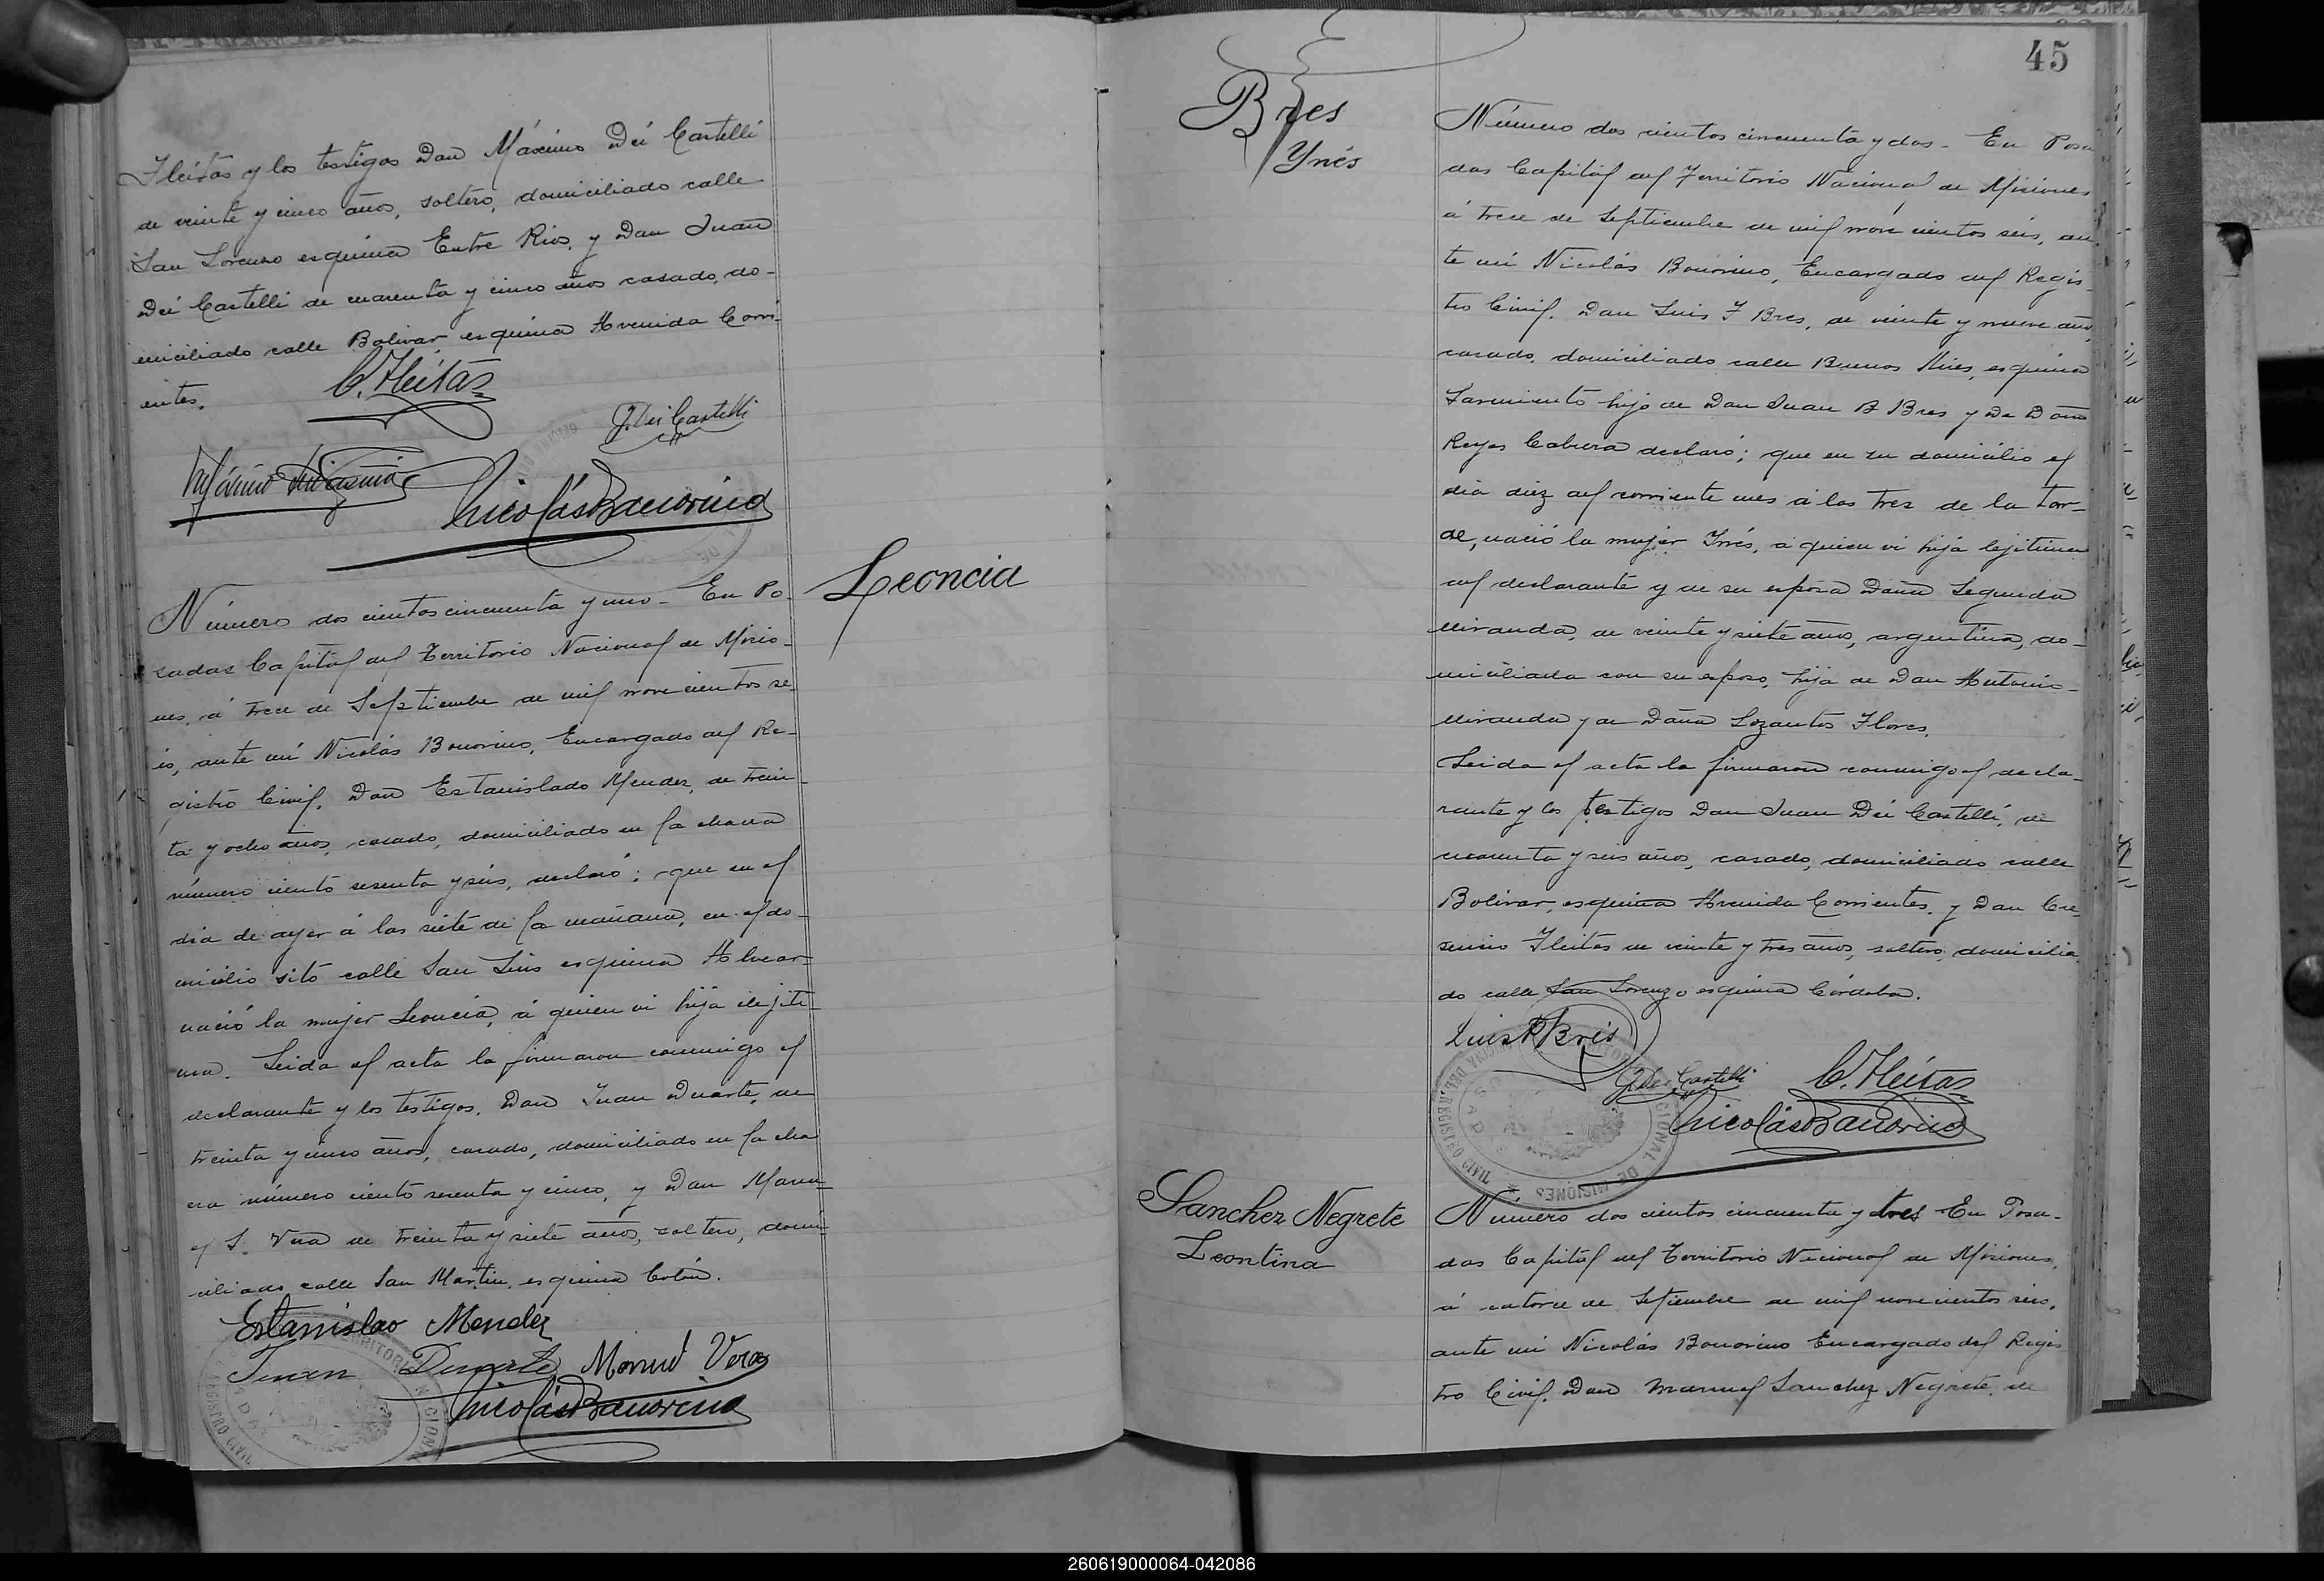 Fleitas y los testigos Don Máximo Dei Castelli
de veinte y cinco años, soltero, domiciliado calle
San Lorenzo esquina Entre Rios, y Don Juan
Dei Castelli de cuarenta y cinco años casado, do-
miciliado calle Bolivar, esquina Avenida Corri-
entes.
C. Fleitas
J. Dei Castelli
Nicolás Bonorino
Leoncia
Número dos cientos cincuenta y uno - En Po-
sadas Capital del Territorio Nacional de Misio-
nes, á trece de Septiembre de mil novecientos se-
is, ante mi Nicolás Bonorino, Encargado del Re-
gistro Civil, Don Estanislado Mendez, de trein-
ta y ocho años, casado, domiciliado en la chacra
número ciento sesenta y seis, declaró: que en el
dia de ayer á las siete de la mañana, en el do-
micilio sito calle San Luis esquina Alvear
nació la mujer Leoncia, á quien vi hija ilejiti-
ma. Leida el acta la firmaron conmigo el
declarante y los testigos, Don Juan Duarte, de
treinta y cinco años, casado, domiciliado en la cha
cra número ciento sesenta y cinco, y Don Manu-
el S. Vera de treinta y siete años, soltero, domi-
ciliado calle San Martin, esquina Colón.
Estanislao Mendez
Juan Duarte Manuel Vera
Nicolás Bonorino
45
Bres
Ynés
Número dos cientos cincuenta y dos - En Posa
das Capital del Territorio Nacional de Misiones
á trece de Septiembre de mil nove cientos seis, an
te mi Nicolás Bonorino, Encargado del Regis-
tro Civil, Don Luis F Bres, de veinte y nueve años,
casado, domiciliado calle Buenos Aires, esquina
Sarmiento hijo de Don Juan B Bres y de Doña
Reyes Cabrera declaró; que en su domicilio el
dia diez del corriente mes á las tres de la tar-
de, nació la mujer Inés, á quien vi hija lejitima
del declarante y de su esposa Doña Segunda
Miranda, de veinte y siete años, argentina, do-
miciliada con su esposo, hija de Don Antonio
Miranda y de Doña Lozantos Flores.
Leida el acta la firmaron conmigo el decla-
rante y los testigos Don Juan Dei Castelli, de
cuarenta y seis años, casado, domiciliado calle
Bolivar, esquina Avenida Corrientes, y Don Ce-
sereino Fleitas de veinte y tres años, soltero, domicilia
do calle San Lorenzo esquina Córdoba.
Luis F Bres
J. Dei Castelli C. Fleitas
Nicolás Bonorino
REGISTRO CIVIL
NACIONAL DE MISIONES
Sanchez Negrete
Leontina
Número dos cientos cincuenta y tres - En Posa-
das Capital del Territorio Nacional de Misiones,
á catorce de Setiembre de mil novecientos seis,
ante mi Nicolás Bonorino Encargado del Regis
tro Civil, Don Manuel Sanchez Negrete, de
260619000064-042086